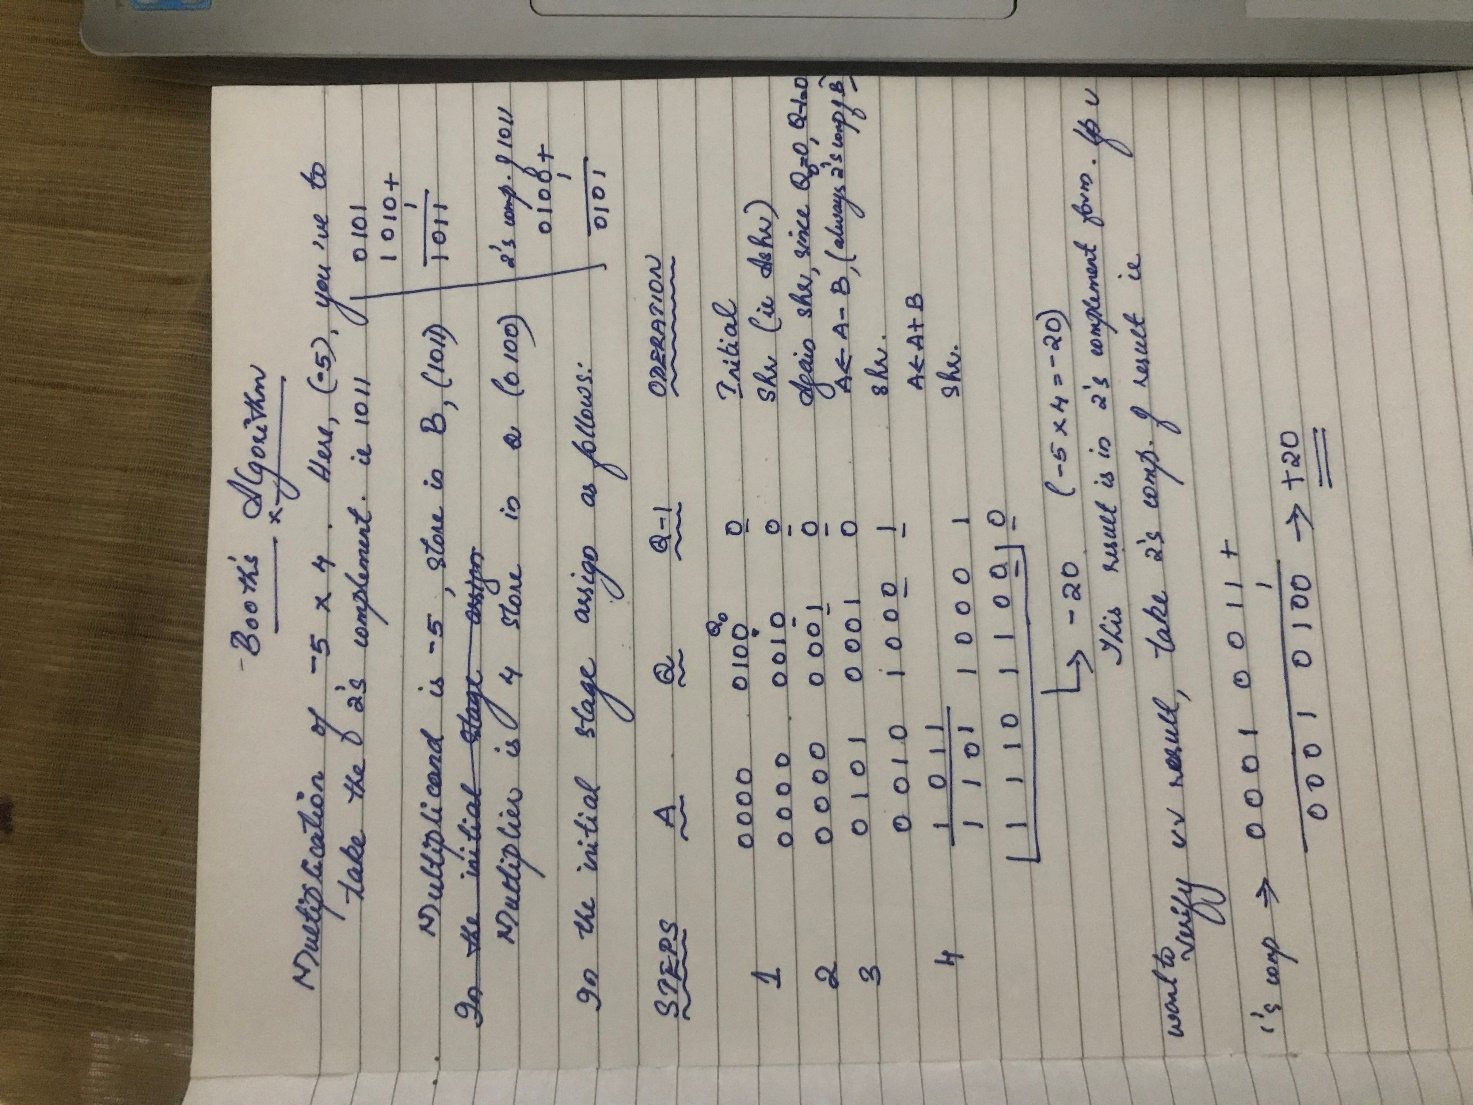 Booth's Algorithm
x
Multiplication of -5 x 4. Here, (-5), you've to
take the 2's complement. ie 1011
0101
1010+
1
1011
Multiplicand is -5, store in B, (1011)
In the initial stage assign
Multiplier is 4 store in Q (0100)
2's comp. of 1011
0100+
1
0101
In the initial stage assign as follows:
STEPS A Q Q-1 OPERATION
Q0
0000 0100 0 Initial
1 0000 0010 0 Shr (ie Ashr)
2 0000 0001 0 Again shr, since Q0=0, Q-1=0
3 0101 0001 0 A← A-B, (always 2's comp of B)
0010 1000 1 Shr.
4 1011 A← A+B
1101 1000 1 Shr.
1110 1100 0
→ -20 (-5 x 4 = -20)
This result is in 2's complement form. If u
want to verify ur result, take 2's comp. of result ie
1's comp → 0001 0011 +
1
0001 0100 → +20